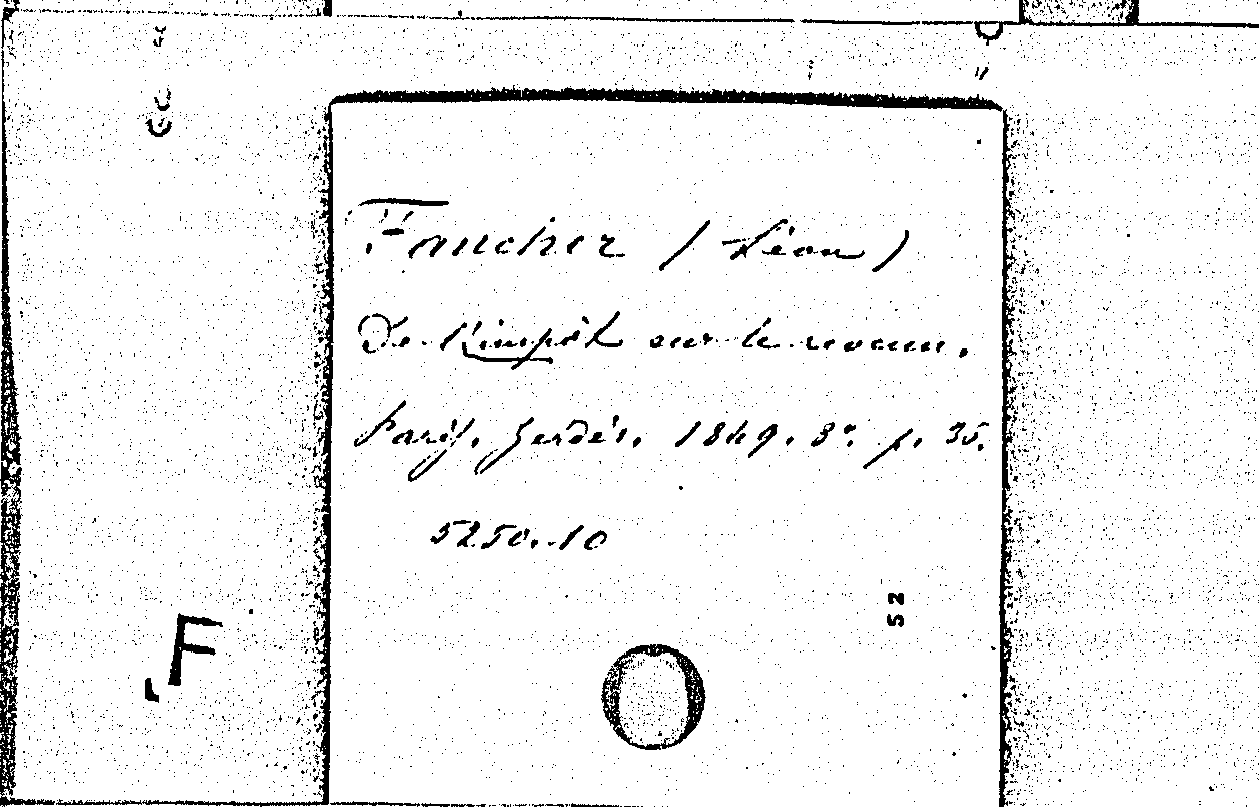 Faucher (Léon)
De l'impôt sur le revenu.
Paris, Gerdès, 1849. 8°. p. 35.
5250.-10
52
F